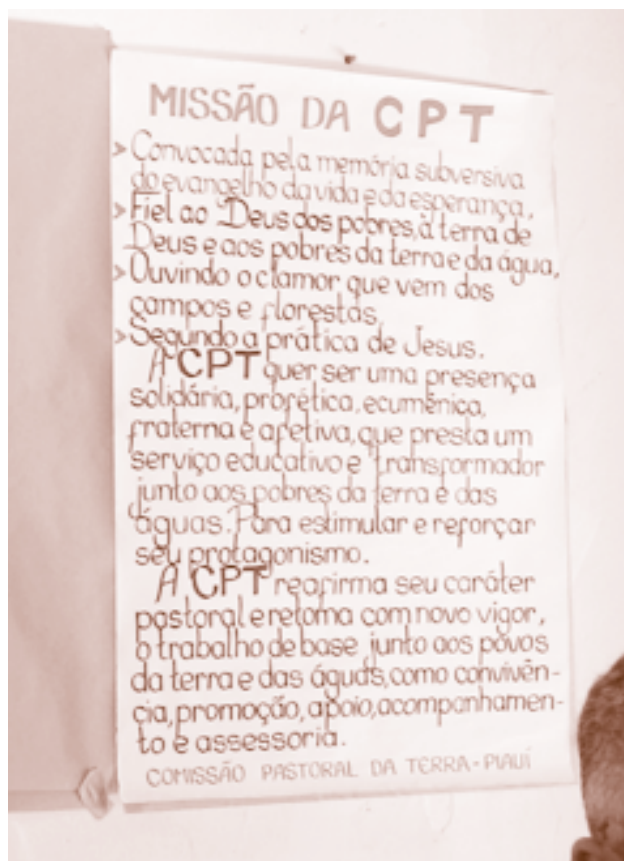 MISSÃO DA CPT
> Convocada pela memória subversiva
do evangelho da vida e da esperança,
> Fiel ao Deus dos pobres, à terra de
Deus e aos pobres da terra e da água,
> Ouvindo o clamor que vem dos
campos e florestas,
> Segundo a prática de Jesus.
A CPT quer ser uma presença
solidária, profética, ecumênica,
fraterna e afetiva, que presta um
serviço educativo e transformador
junto aos pobres da terra e das
águas. Para estimular e reforçar
seu protagonismo.
A CPT reafirma seu caráter
pastoral e retoma com novo vigor,
o trabalho de base junto aos povos
da terra e das águas, como convivên-
cia, promoção, apoio, acompanhamen-
to e assessoria.
COMISSÃO PASTORAL DA TERRA - PIAUÍ